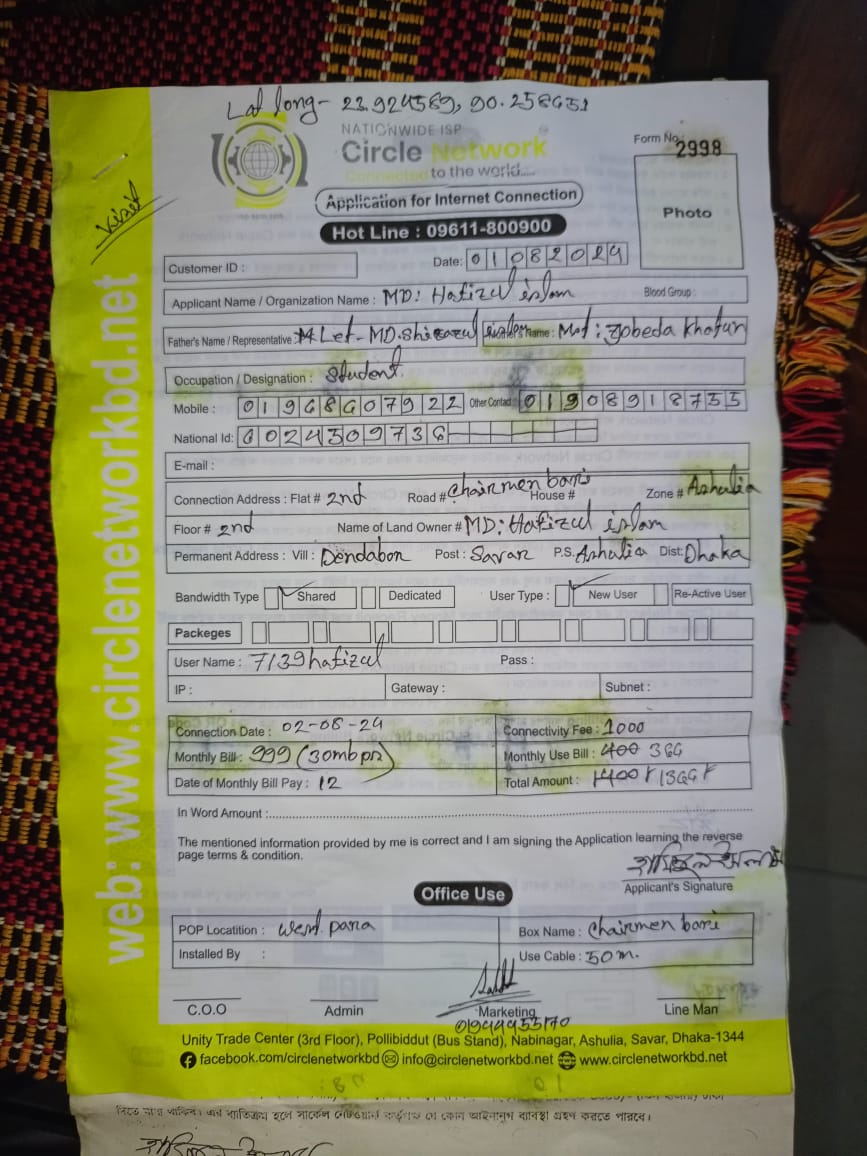 Lat long- 23.924589, 90.258651
NATIONWIDE ISP
Circle Network
Connected to the world.....
Form No: 2998
Application for Internet Connection
Photo
Visit
Hot Line : 09611-800900
Customer ID :
Date: 01082024
Applicant Name / Organization Name : MD: Hafizul islam
Blood Group :
Father's Name / Representative : Let- MD. islam Name : Mst: Jobeda Khatun
Occupation / Designation : Student
Mobile : 01968607922 Other Contact : 01908918755
National Id: 6024309736
E-mail :
Connection Address : Flat # 2nd Road # Chairmen bari House # Zone # Ashulia
Floor # 2nd Name of Land Owner # MD: Hafizul islam
Permanent Address : Vill : Dendabor Post : Savar P.S. Ashulia Dist: Dhaka
Bandwidth Type Shared Dedicated User Type : New User Re-Active User
Packeges
User Name : 7139hafizul Pass :
IP : Gateway : Subnet :
Connection Date : 02-08-24 Connectivity Fee : 1000
Monthly Bill : 999 (30mbps) Monthly Use Bill : 400 366
Date of Monthly Bill Pay : 12 Total Amount : 1400 1366
In Word Amount :
The mentioned information provided by me is correct and I am signing the Application learning the reverse
page terms & condition.
হাফিজুল ইসলাম
Applicant's Signature
Office Use
POP Locatition : West para Box Name : Chairmen bari
Installed By : Use Cable : 50 m.
C.O.O Admin Marketing Line Man
Unity Trade Center (3rd Floor), Pollibiddut (Bus Stand), Nabinagar, Ashulia, Savar, Dhaka-1344
facebook.com/circlenetworkbd info@circlenetworkbd.net www.circlenetworkbd.net
web: www.circlenetworkbd.net